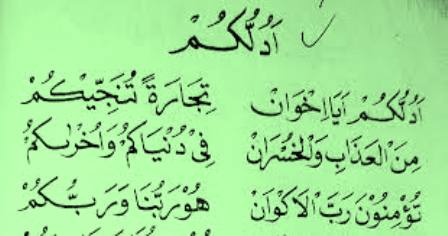 اَدُلُّكُمْ
اَدُلُّكُمْ اَيَااِخْوَانْ تِجَارَةً تُنَجِّيْكُمْ
مِنَ الْعَذَابِ وَالْخُسْرَانْ فِيْ دُنْيَاكُمْ وَاُخْرٰىكُمْ
تُؤْمِنُوْنَ رَبَّ الْاَكْوَانْ هُوْرَبُّنَا وَرَبُّكُمْ